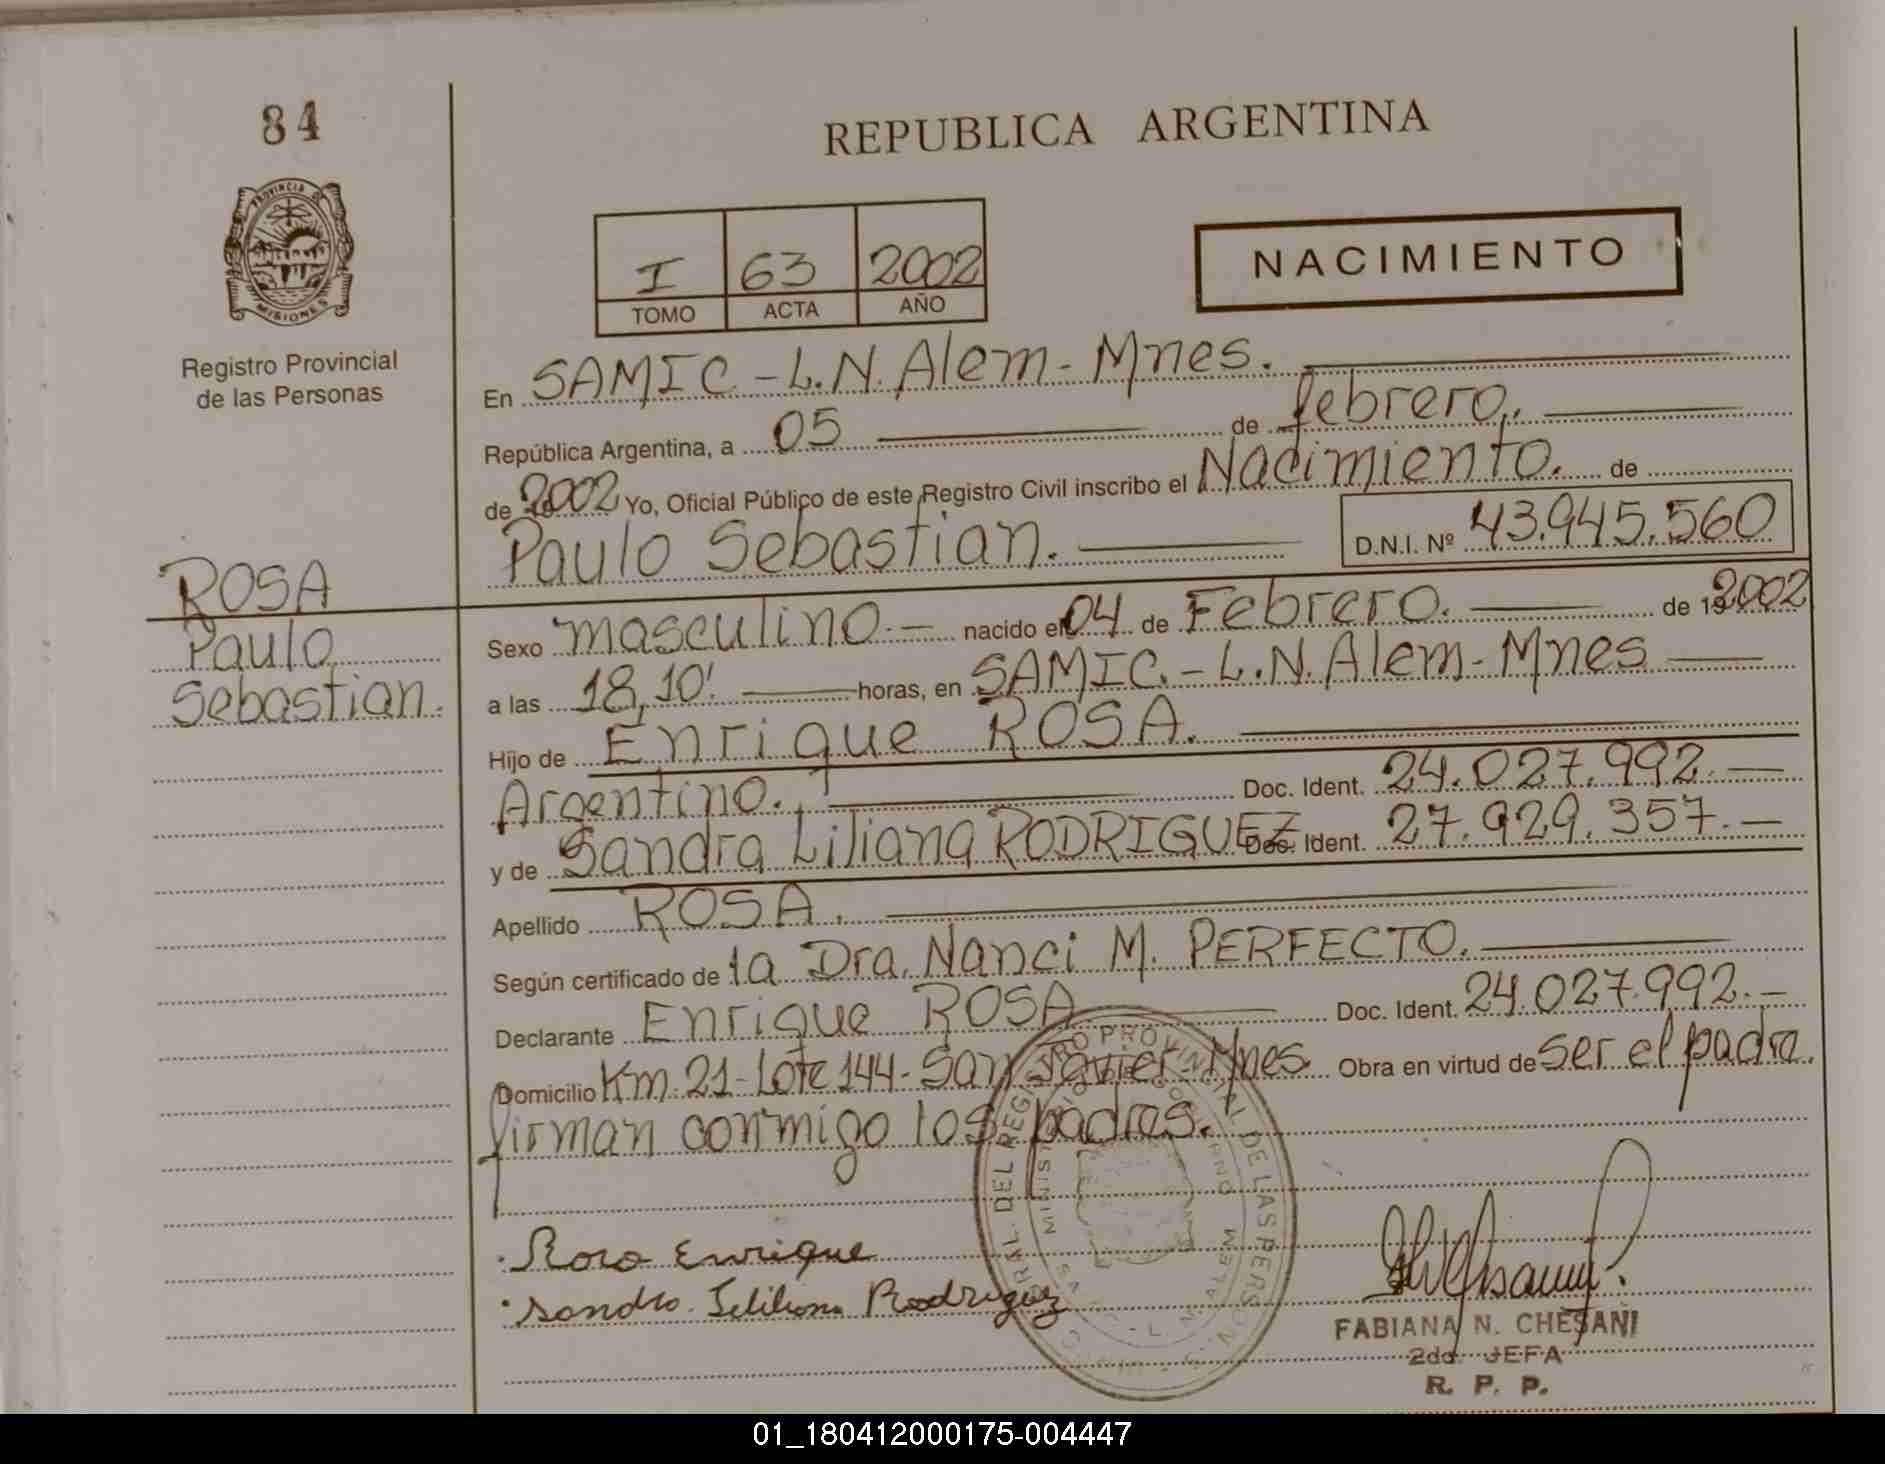 84
REPUBLICA ARGENTINA
PROVINCIA DE
MISIONES
Registro Provincial
de las Personas
I 63 2002
TOMO ACTA AÑO
NACIMIENTO
En SAMIC - L.N. Alem - Mnes.
República Argentina, a 05 de febrero.
de 2002 Yo, Oficial Público de este Registro Civil inscribo el Nacimiento. de
Paulo Sebastian. D.N.I. Nº 43.945.560
ROSA
Paulo
Sebastian.
Sexo masculino. - nacido el 04 de Febrero. de 19 2002
a las 18,10' horas, en SAMIC. - L.N. Alem - Mnes
Hijo de Enrique ROSA.
Argentino. Doc. Ident. 24.027.992. -
y de Sandra Liliana RODRIGUEZ Doc. Ident. 27.929.357. -
Apellido ROSA.
Según certificado de la Dra. Nanci M. PERFECTO.
Declarante Enrique ROSA Doc. Ident. 24.027.992. -
Domicilio Km. 21 - Lote 144 - San Javier - Mnes. Obra en virtud de ser el padre.
firman conmigo los padres.
Rosa Enrique
Sandra Liliana Rodriguez
DEL REGISTRO PROVINCIAL DE LAS PERSON
FABIANA N. CHESANI
2da. JEFA
R. P. P.
01_180412000175-004447